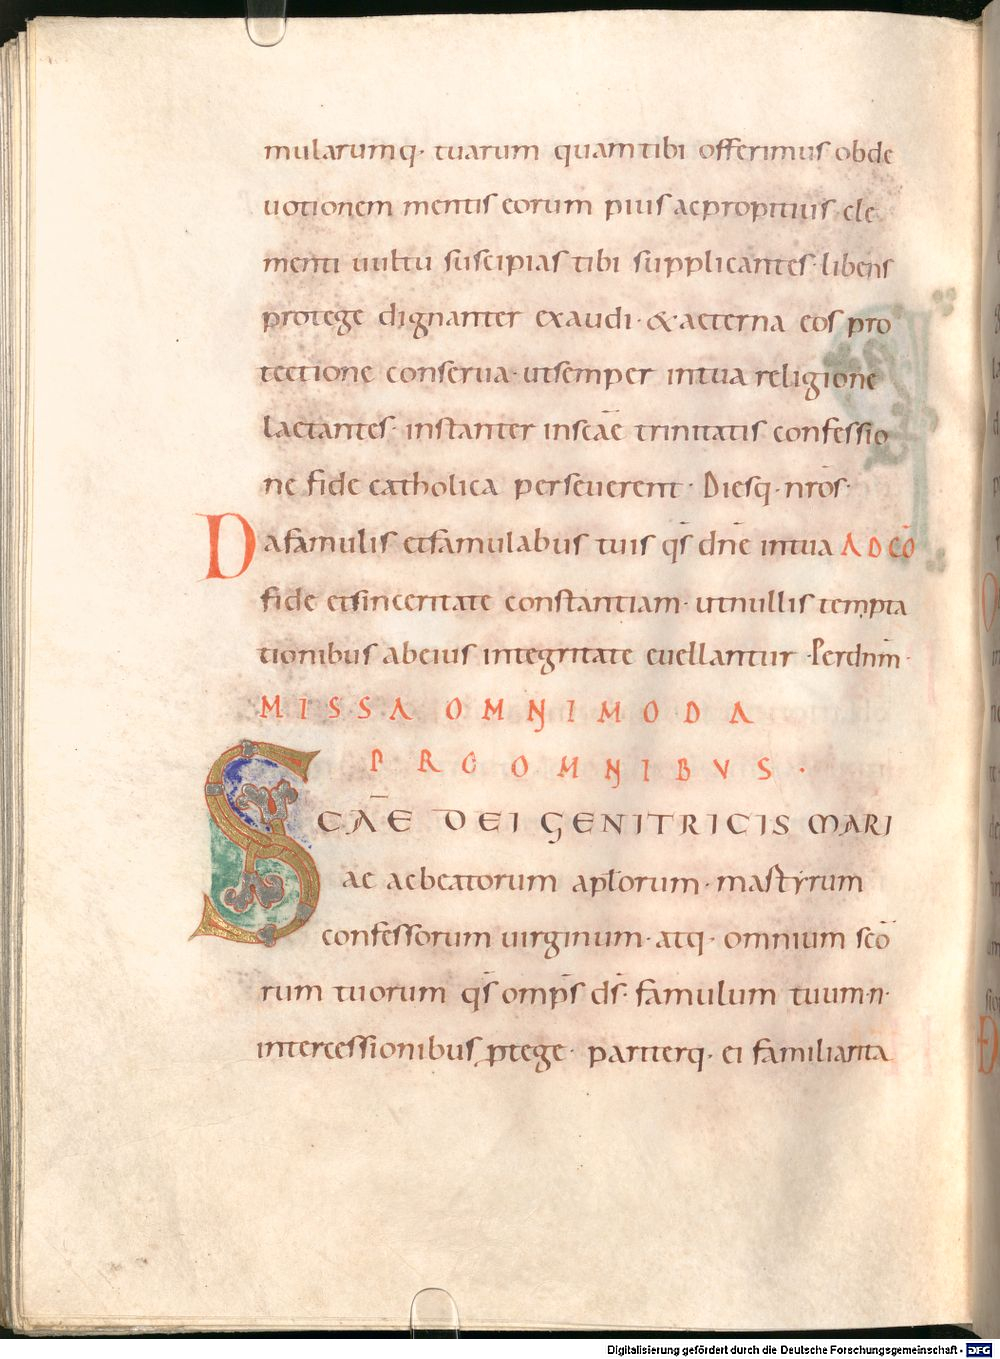 mularumq· tuarum quam tibi offerimus ob de
uotionem mentis eorum pius ac propitius cle
menti uultu suscipias tibi supplicantes· libens
protege dignanter exaudi· & aeterna eos pro
tectione conserua· ut semper in tua religione
laetantes· instanter in scāe trinitatis confessio
ne fide catholica perseuerent· Diesq· nrōs·
Da famulis et famulabus tuis qs̄ dnē in tua AD CŌ
fide et sinceritate constantiam· ut nullis tempta
tionibus ab eius integritate euellantur· Per dnm̄·
MISSA OMNIMODA
PRO OMNIBVS·
SCĀE DEI GENITRICIS MARI
ae ac beatorum aplorum· martyrum
confessorum uirginum· atq· omnium scō
rum tuorum qs̄ omps̄ ds̄· famulum tuum·n·
intercessionibus ꝓtege· pariterq· ei familiarita
Digitalisierung gefördert durch die Deutsche Forschungsgemeinschaft - DFG